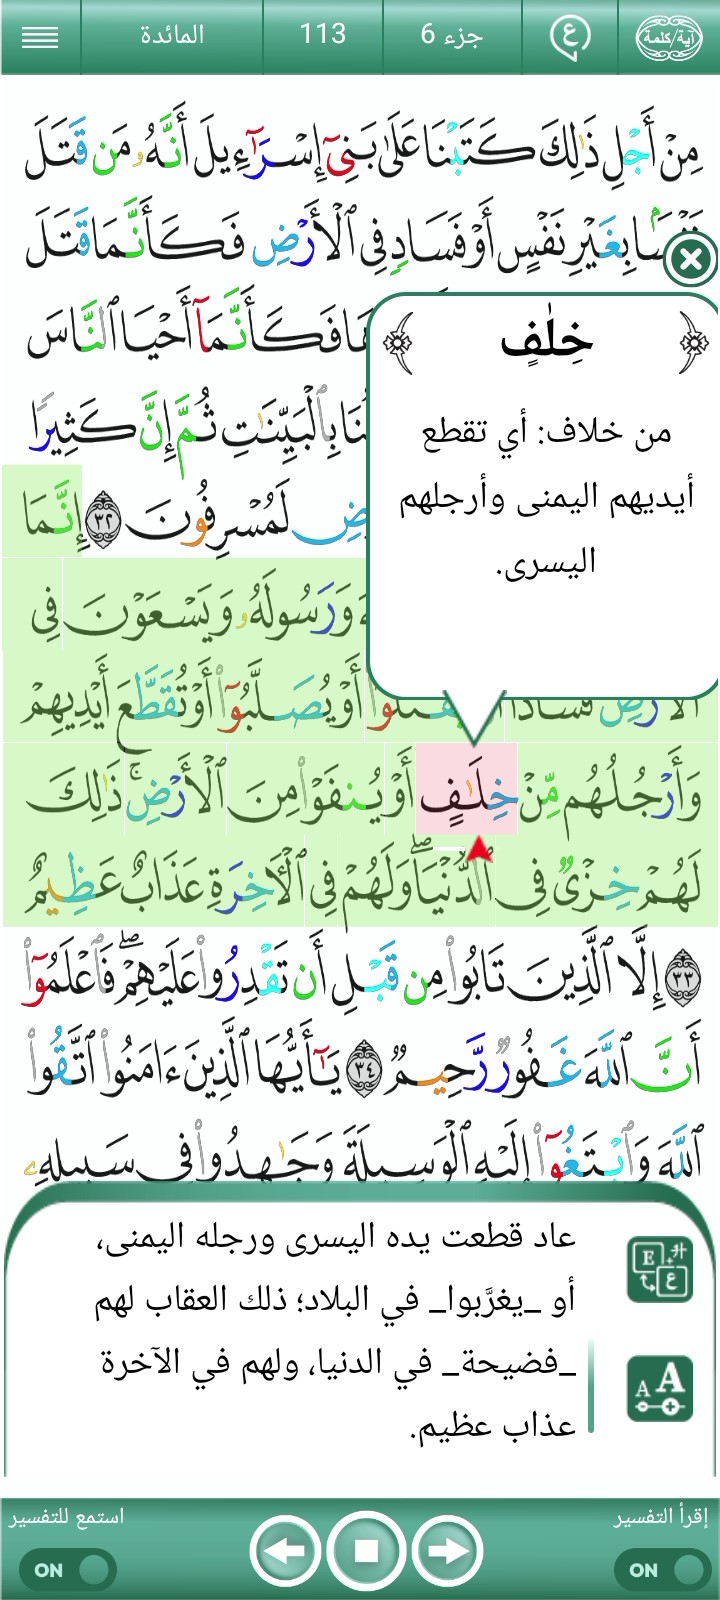 آية/كلمة
ع
جزء 6
113
المائدة
مِنْ أَجْلِ ذَٰلِكَ كَتَبْنَا عَلَىٰ بَنِىٓ إِسْرَٰٓءِيلَ أَنَّهُۥ مَن قَتَلَ
بِغَيْرِ نَفْسٍ أَوْ فَسَادٍ فِى ٱلْأَرْضِ فَكَأَنَّمَا قَتَلَ
فَكَأَنَّمَآ أَحْيَا ٱلنَّاسَ
بِٱلْبَيِّنَـٰتِ ثُمَّ إِنَّ كَثِيرًا
لَمُسْرِفُونَ ٣٢ إِنَّمَا
وَرَسُولَهُۥ وَيَسْعَوْنَ فِى
أَوْ يُصَلَّبُوٓا۟ أَوْ تُقَطَّعَ أَيْدِيهِمْ
وَأَرْجُلُهُم مِّنْ خِلَـٰفٍ أَوْ يُنفَوْا۟ مِنَ ٱلْأَرْضِ ۚ ذَٰلِكَ
لَهُمْ خِزْىٌ فِى ٱلدُّنْيَا ۖ وَلَهُمْ فِى ٱلْـَٔاخِرَةِ عَذَابٌ عَظِيمٌ
٣٣ إِلَّا ٱلَّذِينَ تَابُوا۟ مِن قَبْلِ أَن تَقْدِرُوا۟ عَلَيْهِمْ ۖ فَٱعْلَمُوٓا۟
أَنَّ ٱللَّهَ غَفُورٌ رَّحِيمٌ ٣٤ يَـٰٓأَيُّهَا ٱلَّذِينَ ءَامَنُوا۟ ٱتَّقُوا۟
ٱللَّهَ وَٱبْتَغُوٓا۟ إِلَيْهِ ٱلْوَسِيلَةَ وَجَـٰهِدُوا۟ فِى سَبِيلِهِۦ
خِلَٰفٍ
من خلاف: أي تقطع
أيديهم اليمنى وأرجلهم
اليسرى.
عاد قطعت يده اليسرى ورجله اليمنى،
أو _يغرَّبوا_ في البلاد؛ ذلك العقاب لهم
_فضيحة_ في الدنيا، ولهم في الآخرة
عذاب عظيم.
E ع
A A
إقرأ التفسير
استمع للتفسير
ON
ON